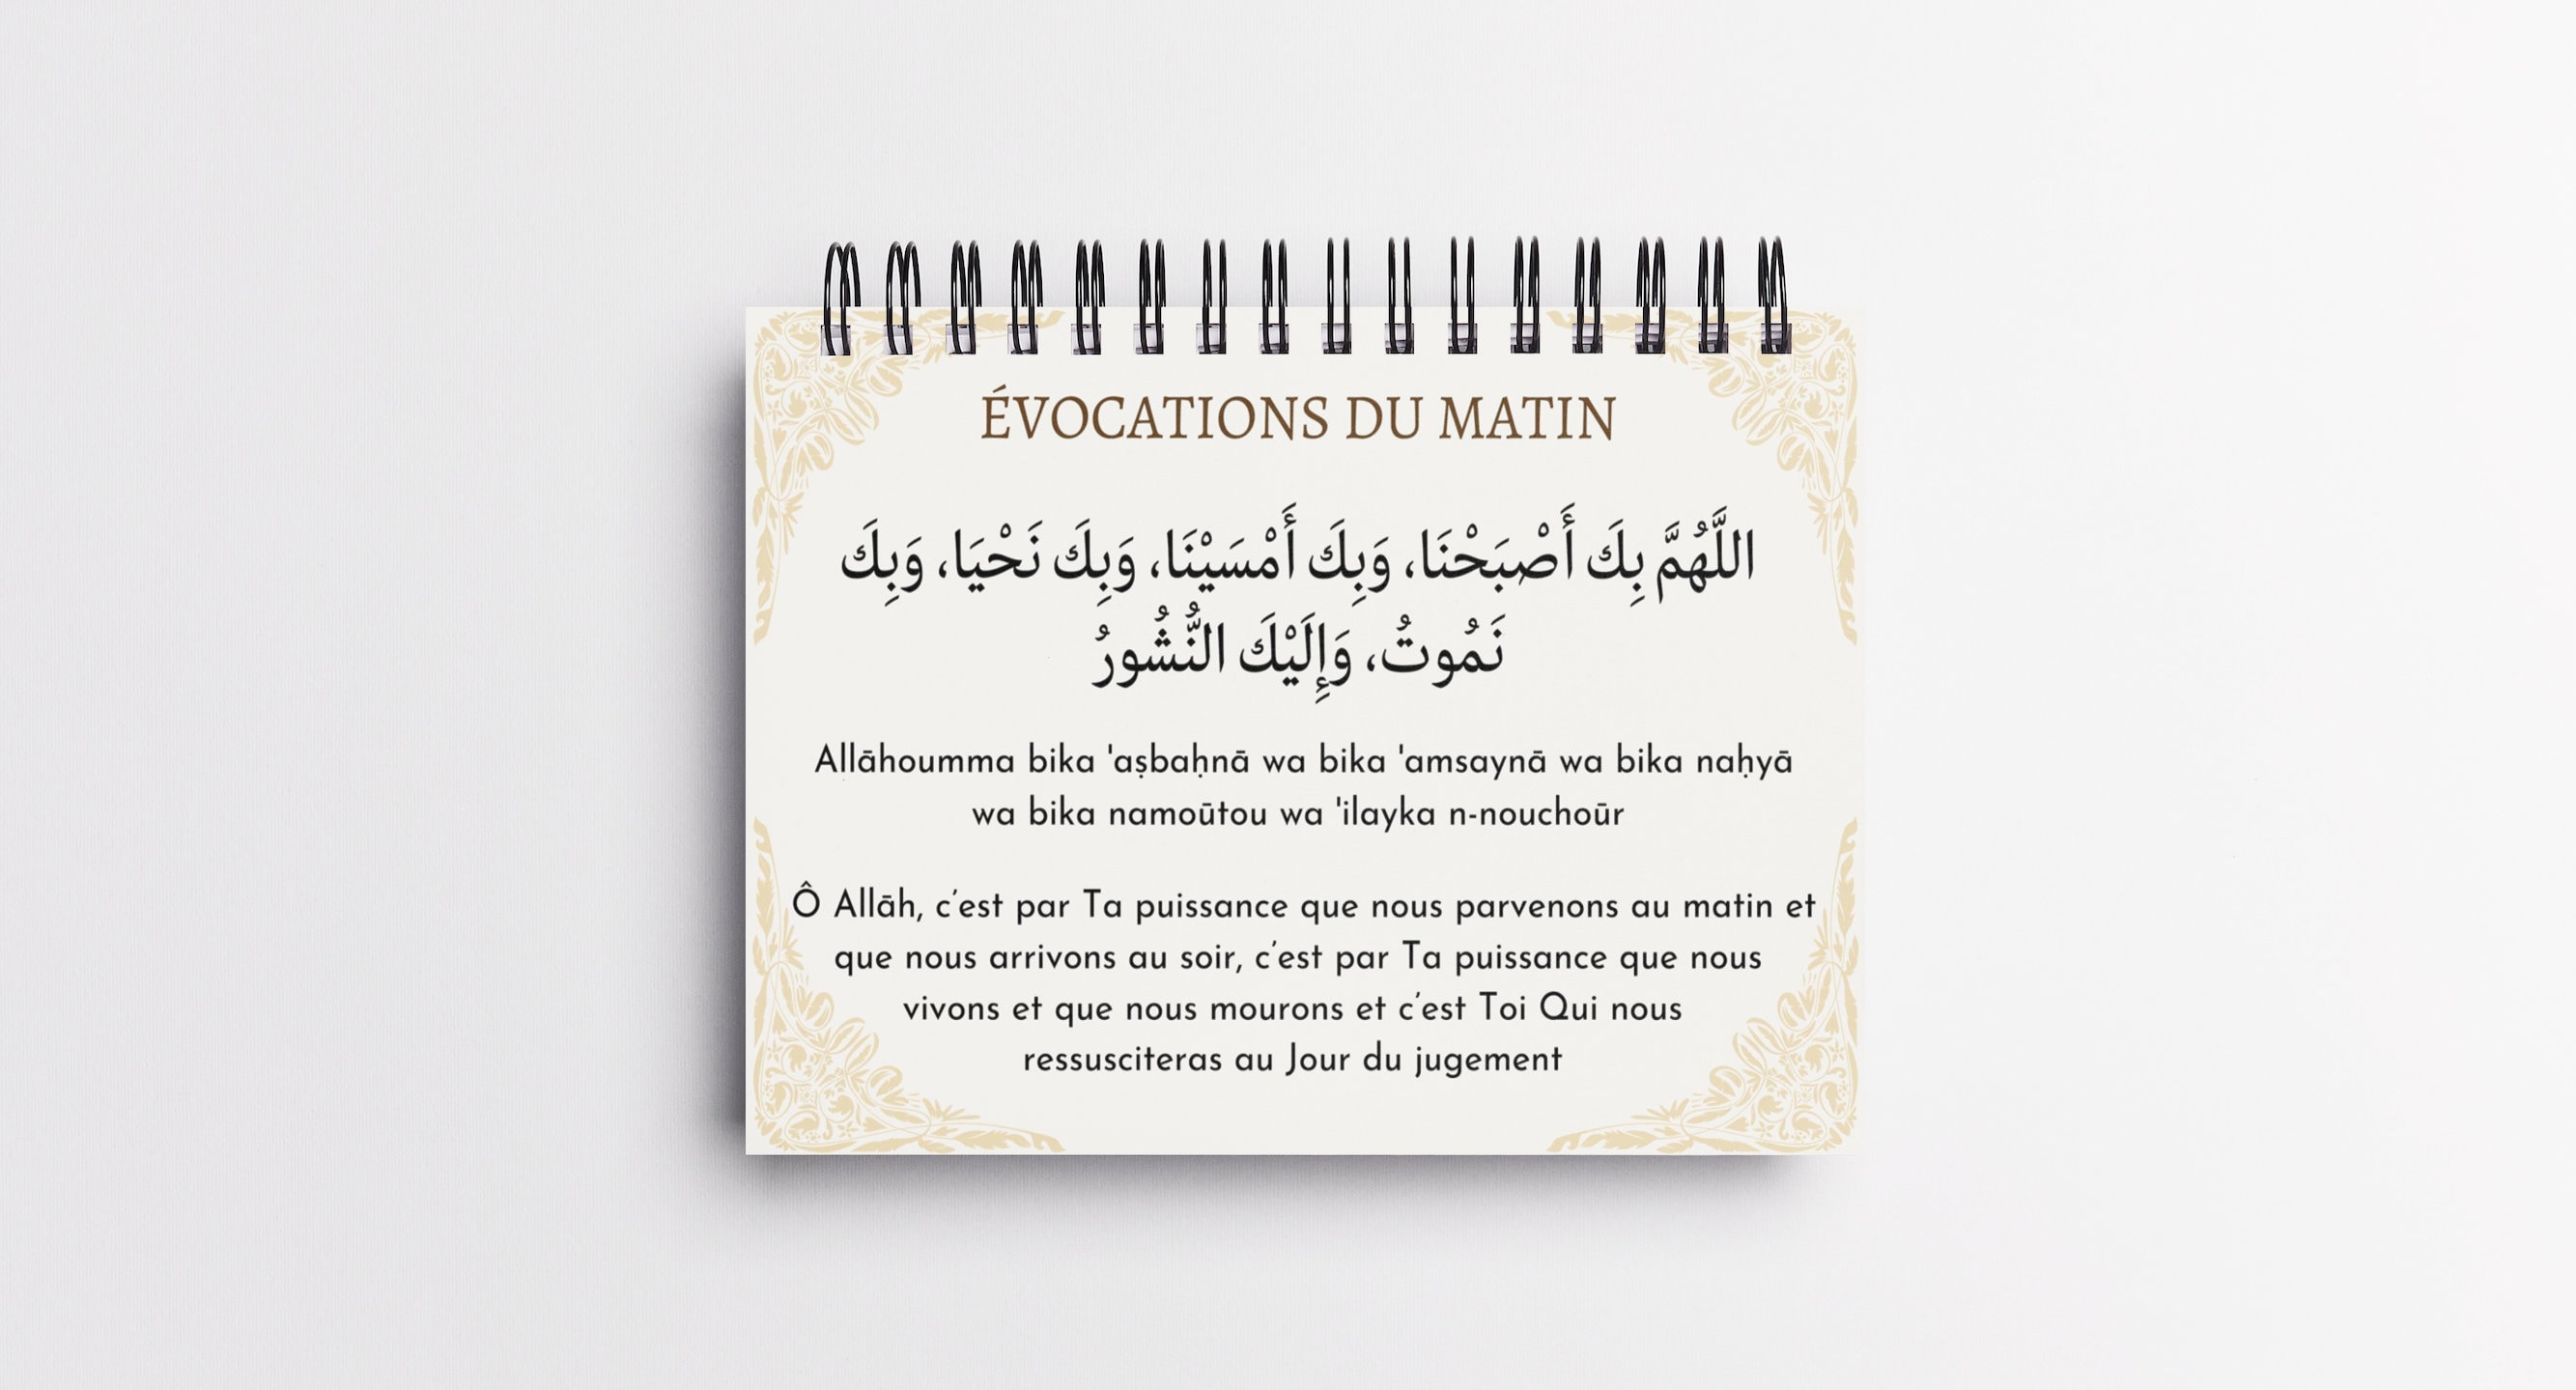 ÉVOCATIONS DU MATIN
اللَّهُمَّ بِكَ أَصْبَحْنَا، وَبِكَ أَمْسَيْنَا، وَبِكَ نَحْيَا، وَبِكَ
نَمُوتُ، وَإِلَيْكَ النُّشُورُ
Allāhoumma bika 'aṣbaḥnā wa bika 'amsaynā wa bika naḥyā
wa bika namoūtou wa 'ilayka n-nouchoūr
Ô Allāh, c'est par Ta puissance que nous parvenons au matin et
que nous arrivons au soir, c'est par Ta puissance que nous
vivons et que nous mourons et c'est Toi Qui nous
ressusciteras au Jour du jugement